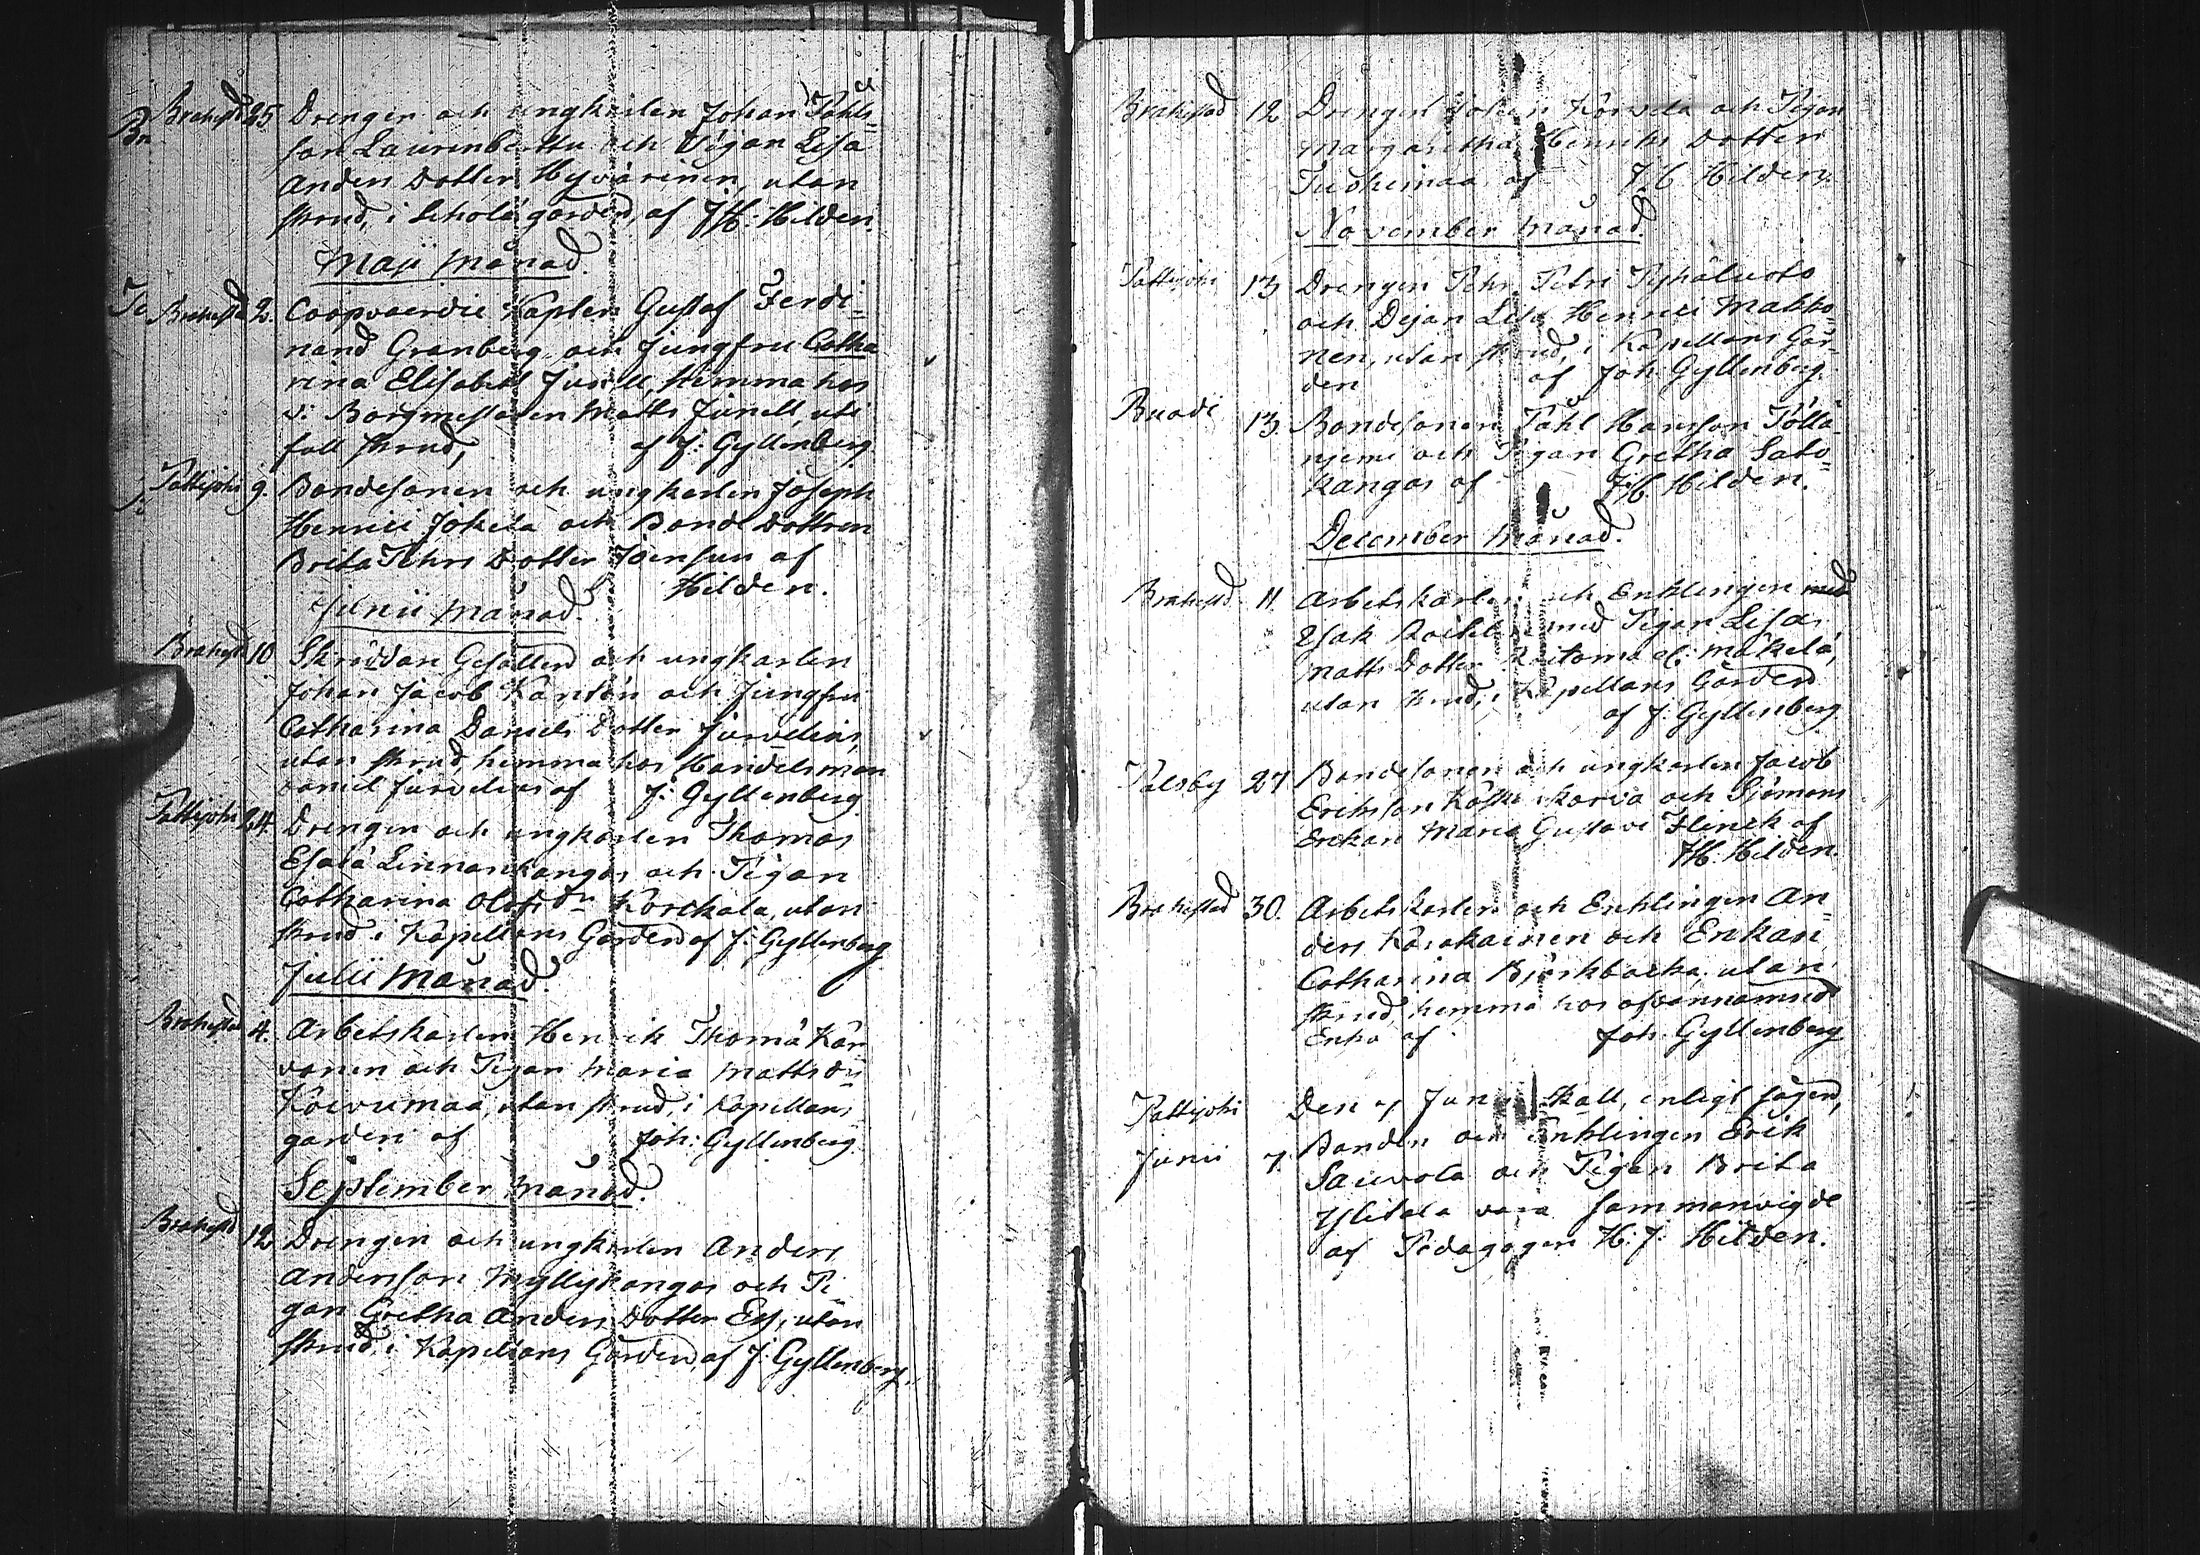 Brahestad 25 Drengen och ungkarlen Johan Påhls-
son Laurinberttu och Pigan Lisa
Anders Dotter Hyvärinen, utan
skrud, i Scholægården, af J H: Hilden.
Maji månad.
Brahestad 2. Coopvaerdie Kapten Gustaf Ferdi-
nand Granberg och Jungfru Catha
rina Elisabeth Junell, hemma hos
v: Borgmestaren Matts Junell, uti
full skrud, af J: Gyllenberg
Pattijoki 9. Bondesonen och ungkarlen Joseph
Henrici Jokela och Bonde Dottren
Brita Pehrs Dotter Joensuu af
Hilden.
Junii månad.
Brahestad 10 Skräddare Gesällen och ungkarlen
Johan Jacob Kantén och Jungfru
Catharina Daniels Dotter Jurvelius,
utan skrud, hemma hos Handelsman
Daniel Jurvelius af J: Gyllenberg
Pattijoki 24. Drengen och ungkarlen Thomas
Esaiæ Linnankangas och Pigan
Catharina Olofsdr Korckala, utan
skrud i Kapellans Gården af J: Gyllenberg
Julii månad.
Brahestad 4. Arbetskarlen Henrik Thomæ Kar
vonen och Pigan Maria Mattsdr
Koivumaa, utan skrud, i Kapellans
gården af Joh: Gyllenberg
September månad.
Brahestad 12 Drengen och ungkarlen Anders
Andersson Myllykangas och Pi-
gan Gretha Anders Dotter Ess, utan
skrud, i Kapellans Gården, af J: Gyllenberg.
Brahestad 12 Drengen Johan och Pigan
Margaretha Henriks Dotter
Tuohimaa af J H Hilden.
November månad.
Pattijoki 13 Drengen Pehr Petri
och Pigan Lisa Henrici Makko-
nen, utan skrud, i Kapellans Går-
den af Joh: Gyllenberg.
13. Bondesonen Påhl Hansson Pölla-
njemi och Pigan Gretha Salo-
kangas af J H. Hilden.
December månad.
Brahestad 11. Arbetskarlen och Enklingen med
Esak med Pigan Lisa
Matts Dotter el: Mäkelä,
utan skrud, i Kapellans Gården
af J: Gyllenberg
27 Bondesonen och ungkarlen Jacob
Eriksson och Sjömans
Enkan Maria Gustava Flinck af
J H. Hilden.
Brahestad 30. Arbetskarlen och Enklingen An-
ders Karjalainen och Enkan
Catharina Björkbacka, utan
skrud, hemma hos ofvannämnde
Enka af Joh: Gyllenberg
Pattijoki Den 7 Junii skall, enligt sägen,
Junii 7. Bonden och Enklingen Erik
Sauvola och Pigan Brita
Ylitalo vara sammanvigde
af Pedagogen H: J. Hilden.